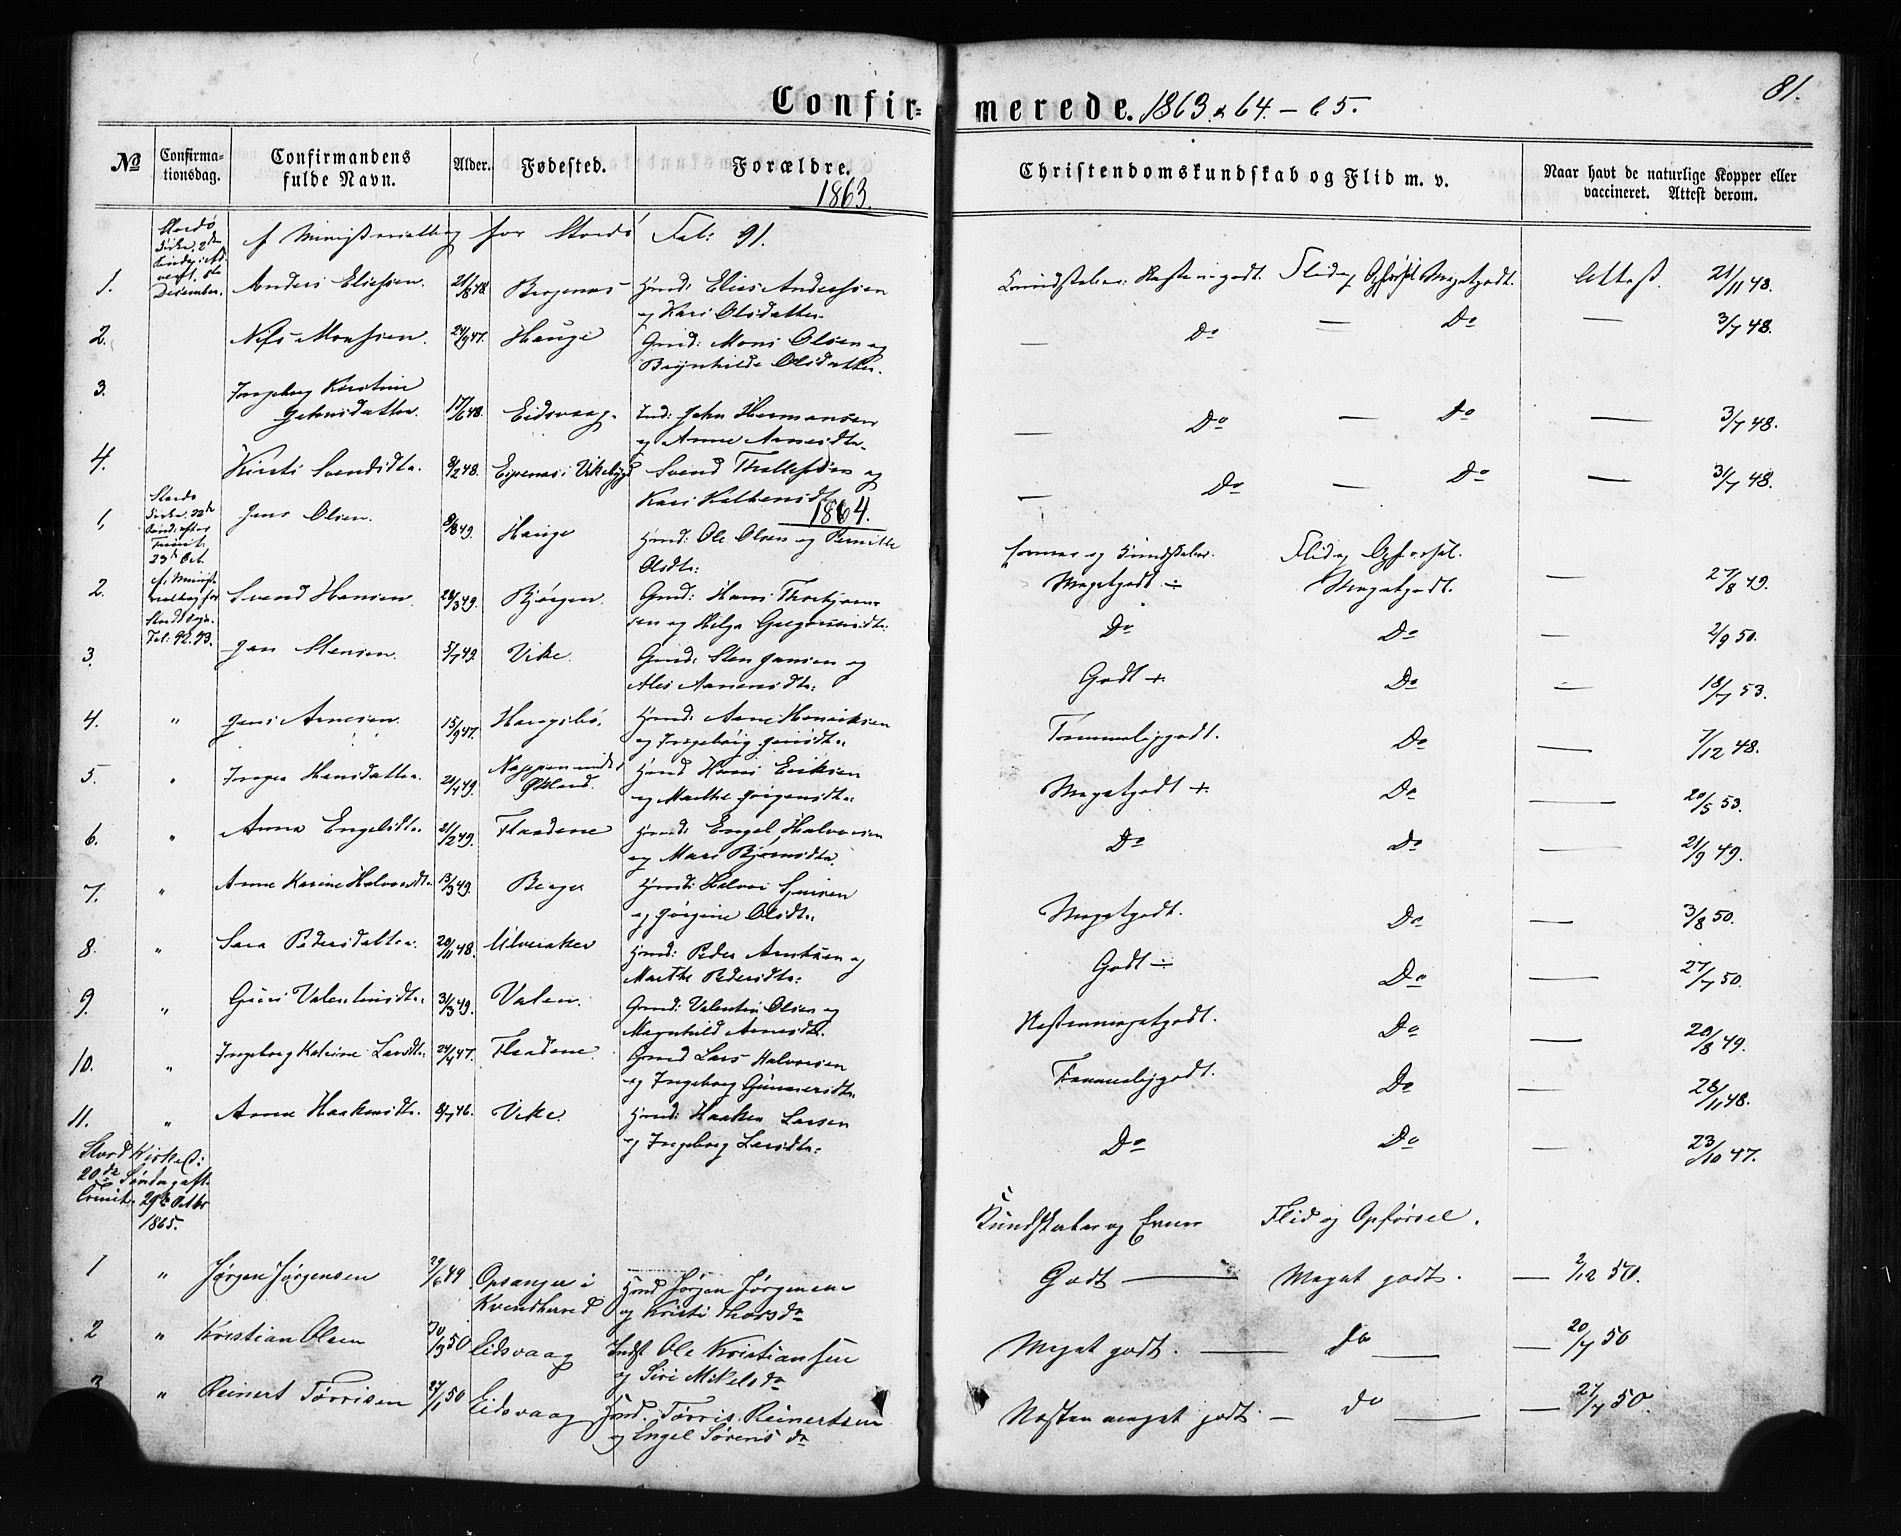 81.
Confirmerede. 1863 & 64. - 65.
No
Confirmationsdag.
Confirmandens fulde Navn.
Alder.
Fødested.
Forældre.
Christendomskundskab og Flid m. v.
Naar havt de naturlige Kopper eller vaccineret. Attest derom.
1863.
Stordø Kirke, 2den Søndag i Advent, 6te December.
cf Ministerialbog for Stordø Fol: 91.
1. Anders Eliessen. 21/8 48. Bergenes Hmd: Elias Anderssen
og Kari Olsdatter. Kundskaber: Næsten megetgodt. Flid og Opførsel Megetgodt. Attest. 21/11 48.
2. Nils Monssen. 24/9 47. Hauge Gmd: Mons Olsen og
Brynhilde Olsdatter. — Do — Do — 3/7 48.
3. Ingeborg Kirstine
Johnsdatter. 17/6 48. Eidsvaag. Ind: John Hermansen
og Anne Arnesdtr. — Do — Do — 3/7 48.
4. Kirsti Svendsdtr. 9/2 48. Eyvenæs i Vikebygd Svend Thollefsen og
Kari — Do — Do — 3/7 48.
1864.
Stordø Kirke, 22de Sønd. efter Trinit. 23de Oct. cf. Ministerialbog for Stord Sogn. Fol: 92. 93.
Evner og Kundskaber. Flid og Opførsel.
1. Jens Olsen. 9/8 49. Hauge Hmd: Ole Olsen og Pernille
Olsdtr: Megetgodt ÷ Megetgodt. — 27/8 49.
2. Svend Hansen. 28/3 49. Bjørgen. Gmd: Hans Thorbjørnsen og Helga Gregoriusdtr: Do Do — 2/9 50.
3. Jan Stensen. 5/7 49. Vike. Gmd: Sten Jansen og
Ales Aanensdtr: Godt + Do — 18/7 53.
4. " Jens Arnesen. 15/9 47. Haugsbø. Hmd: Arne Henriksen
og Ingeborg Jensdtr: Temmeliggodt. Do — 7/12 48.
5. " Inger Hansdatter. 21/4 49. Nappen under Økland. Hmd Hans Eriksen
og Marthe Jørgensdtr: Megetgodt + Do — 20/5 53.
6. " Anna Engelsdtr. 21/2 49. Flaadene Hmd: Engel Halvorsen
og Mari Bjørnsdtr. Do Do — 21/9 49.
7. " Anne Karine Halvorsdtr. 13/3 49. Berge Hmd: Halvor Iversen
og Jørgine Olsdtr: Megetgodt. Do — 3/8 50.
8. " Sara Pedersdatter. 20/11 48. Ulveraker Hmd: Peder Arntsen og
Marthe Pedersdtr: Godt ÷ Do — 27/7 50.
9. " Guri Valentinsdtr. 31/3 49. Valen. Gmd: Valentin Olsen og
Magnhild Arnesdtr. Næstenmegetgodt. Do — 20/8 49.
10. " Ingeborg Katrine Larsdtr. 24/4 47. Flaadene. Gmd Lars Halvorsen
og Ingeborg Gunnarsdtr. Temmeliggodt. Do — 28/11 48.
11. " Anna Haakensdtr. 8/7 46. Vike. Hmd: Haaken Larsen
og Ingeborg Larsdtr: Do Do — 23/10 47.
Stord Kirke d:
20de Søndag eft.
Trinit. 29de Octbr
1865.
Kundskaber og Evner Flid og Opførsel.
1 " Jørgen Jørgensen 29/6 49 Opsanger i
Kvindherred Hmd Jørgen Jørgensen
og Kristi Thorsdr Godt — Meget godt. — 2/12 50.
2 " Kristian Olsen 30/3 50 Eidsvaag Indst Ole Kristiansen
og Siri Mikelsdr Meget godt. — do — 20/7 50
3 " Reinert Tørrisen 27/1 50 Eidsvaag Hmd. Tørris Reinertsen
og Engel Sørensdr Næsten meget godt — do — 27/7 50.